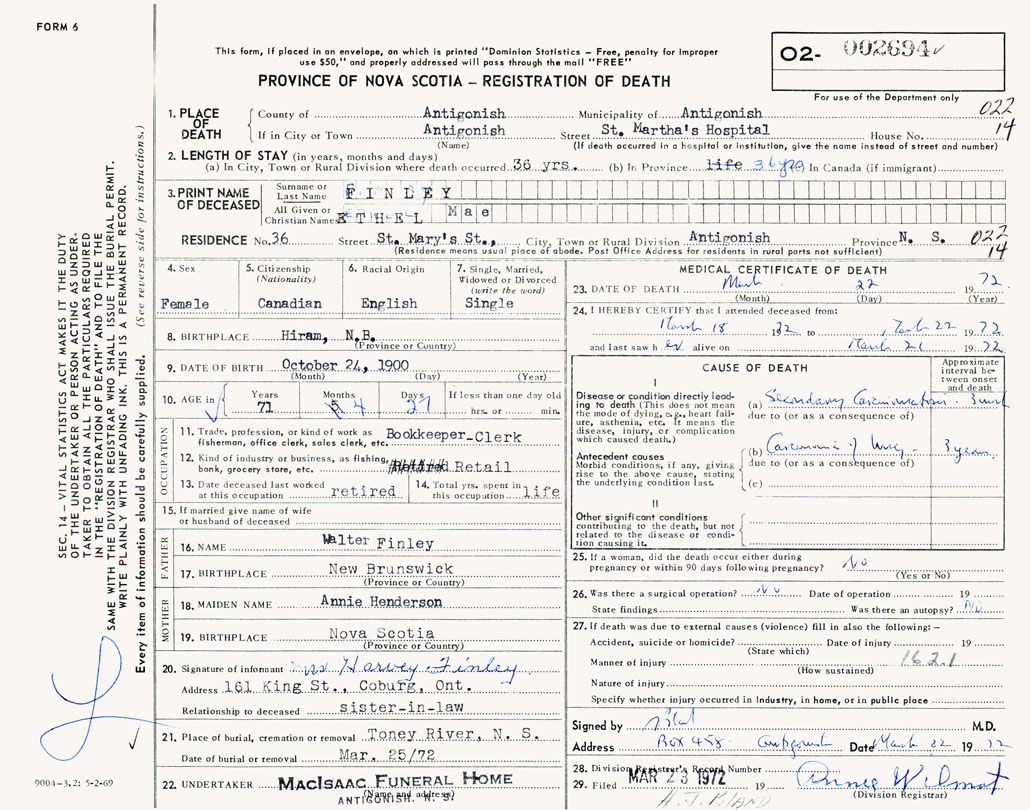 FORM 6
This form, if placed in an envelope, on which is printed "Dominion Statistics – Free, penalty for improper
use $50," and properly addressed will pass through the mail "FREE"
PROVINCE OF NOVA SCOTIA – REGISTRATION OF DEATH
O2- 002694
For use of the Department only
022
14
1. PLACE OF DEATH
County of Antigonish Municipality of Antigonish
If in City or Town Antigonish Street St. Martha's Hospital House No.
(Name) (If death occurred in a hospital or institution, give the name instead of street and number)
2. LENGTH OF STAY (in years, months and days)
(a) In City, Town or Rural Division where death occurred 36 yrs. (b) In Province life 36 yrs In Canada (if immigrant)
3. PRINT NAME OF DECEASED
Surname or Last Name FINLEY
All Given or Christian Names ETHEL Mae
RESIDENCE No. 36 Street St. Mary's St., City, Town or Rural Division Antigonish Province N. S. 022
14
(Residence means usual place of abode. Post Office Address for residents in rural parts not sufficient)
4. Sex
Female
5. Citizenship
(Nationality)
Canadian
6. Racial Origin
English
7. Single, Married,
Widowed or Divorced
(write the word)
Single
8. BIRTHPLACE Hiram, N.B.
(Province or Country)
9. DATE OF BIRTH October 24, 1900
(Month) (Day) (Year)
10. AGE in Years Months Days If less than one day old
71 5 4 27 hrs. or min.
OCCUPATION
11. Trade, profession, or kind of work as
fisherman, office clerk, sales clerk, etc. Bookkeeper-Clerk
12. Kind of industry or business, as fishing,
bank, grocery store, etc. Retired Retail
13. Date deceased last worked
at this occupation retired
14. Total yrs. spent in
this occupation life
15. If married give name of wife
or husband of deceased
FATHER
16. NAME Walter Finley
17. BIRTHPLACE New Brunswick
(Province or Country)
MOTHER
18. MAIDEN NAME Annie Henderson
19. BIRTHPLACE Nova Scotia
(Province or Country)
20. Signature of informant Mrs Harvey Finley
Address 161 King St., Coburg, Ont.
Relationship to deceased sister-in-law
21. Place of burial, cremation or removal Toney River, N. S.
Date of burial or removal Mar. 25/72
22. UNDERTAKER MACISAAC FUNERAL HOME
(Name and address)
ANTIGONISH, N. S.
MEDICAL CERTIFICATE OF DEATH
23. DATE OF DEATH March 22 1972
(Month) (Day) (Year)
24. I HEREBY CERTIFY that I attended deceased from:
March 18 1972 to March 22 1972
and last saw her alive on March 21 1972
CAUSE OF DEATH
Approximate
interval be-
tween onset
and death
I
Disease or condition directly lead-
ing to death (This does not
mean the mode of dying, e.g., heart fail-
ure, asthenia, etc. It means the
disease, injury, or complication
which caused death.)
(a) Secondary Carcinomatosis
due to (or as a consequence of)
Antecedent causes
Morbid conditions, if any, giving
rise to the above cause, stating the
underlying condition last.
(b) Carcinoma of lung 3 years
due to (or as a consequence of)
(c)
II
Other significant conditions
contributing to the death, but not
related to the disease or condi-
tion causing it.
25. If a woman, did the death occur either during
pregnancy or within 90 days following pregnancy? No
(Yes or No)
26. Was there a surgical operation? No Date of operation 19
State findings Was there an autopsy? NO
27. If death was due to external causes (violence) fill in also the following: –
Accident, suicide or homicide? Date of injury 19
(State which)
Manner of injury 162.1
(How sustained)
Nature of injury
Specify whether injury occurred in Industry, in home, or in public place
Signed by M.D.
Address Box 458 Antigonish Date March 22 1972
28. Division Registrar's Record Number
29. Filed MAR 23 1972 19 Annie Wilmot
(Division Registrar)
SEC. 14 – VITAL STATISTICS ACT MAKES IT THE DUTY
OF THE UNDERTAKER OR PERSON ACTING AS UNDER-
TAKER TO OBTAIN ALL THE PARTICULARS REQUIRED
IN THE "REGISTRATION OF DEATH" AND TO FILE THE
SAME WITH THE DIVISION REGISTRAR WHO SHALL ISSUE THE BURIAL PERMIT.
WRITE PLAINLY WITH UNFADING INK. THIS IS A PERMANENT RECORD.
Every item of information should be carefully supplied. (See reverse side for instructions.)
9004-3.2: 5-2-69